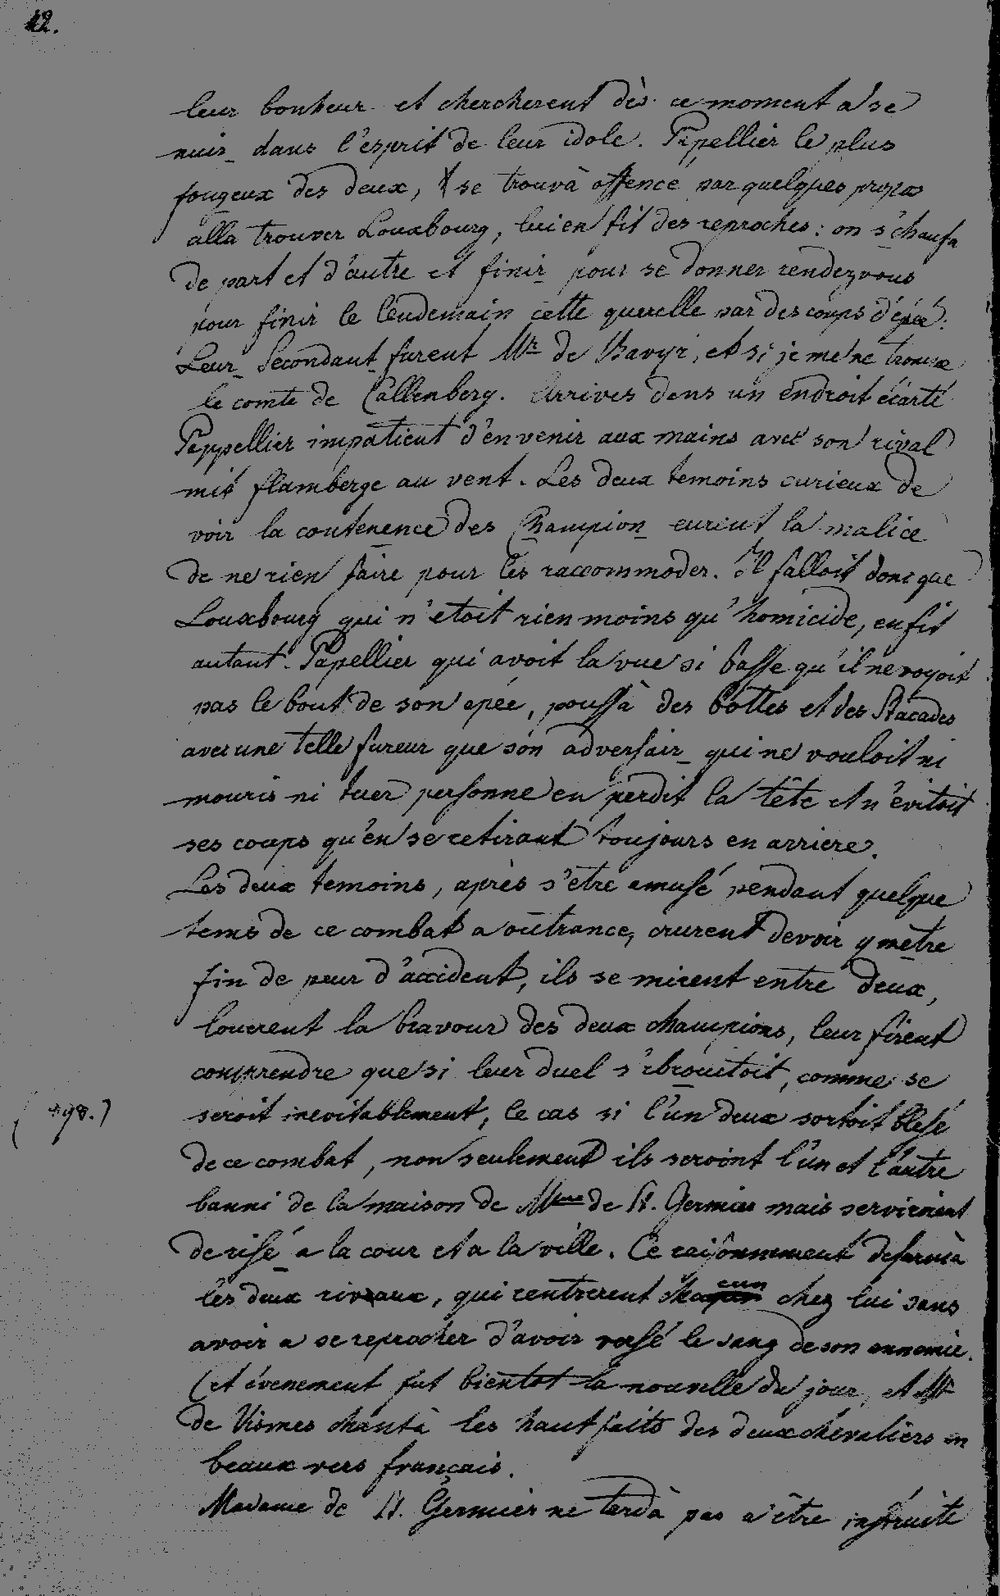 42.
leur bonheur et chercherent dès ce moment a se
nuir dans l'esprit de leur idole. Papellier le plus
fougeux des deux, se trouvà offencé par quelques propos
alla trouver Louxbourg, lui en fit des reproches : on s'chaufa
de part et d'autre et finir pour se donner rendezvous
pour finir le lendemain cette querelle par des coups d'épée.
Leur Secondant furent Mr de et si je me ne trompe
le comte de Callenberg. Arrives dans un endroit écarté
Pappellier impatient d'en venir aux mains avec son rival
mit flamberge au vent. Les deux temoins curieux de
voir la contenence des Champion eurent la malice
de ne rien faire pour les raccommoder. Il falloit donc que
Louxbourg qui n'etoit rien moins qu'homicide, en fit
autant. Papellier qui avoit la vue si basse qu'il ne voyoit
pas le bout de son epée, poussà des bottes et des Stacades
avec une telle fureur que son adversair qui ne vouloit ni
mouris ni tuer personne en perdit la tête et n'évitoit
ses coups qu'en se retirant toujours en arriere.
Les deux temoins, après s'etre amusé pendant quelque
tems de ce combat a outrance, crurent devoir y metre
fin de peur d'accident, ils se mirent entre deux,
louerent la bravour des deux champions, leur firent
comprendre que si leur duel s'ebrouitoit, comme se
seroit inevitablement, le cas si l'un deux sortoit blesé
de ce combat, non seulement ils seroint l'un et l'autre
banni de la maison de Mme de St. Germier mais servirient
de risé a la cour et a la ville. Ce raisonnement desarmà
les deux rivaux, qui rentrerent chacun chez lui sans
avoir a se reprocher d'avoir versé le sang de son ennemie.
Cet évenement fut bientot la nouvelle du jour, et Mr
de Vismes chantà les haut faits des deux chevaliers en
beaux vers français.
Madame de St. Germier ne tardà pas a être instruite
(498.)